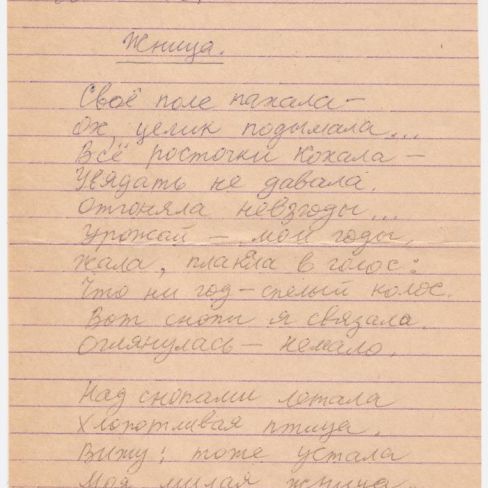 Жница.
Своё поле пахала —
Ох, целик подымала...
Всё росточки кохала —
Увядать не давала.
Отгоняла невзгоды...
Урожай — мои годы.
Жала, плакала в голос:
Что ни год — спелый колос.
Вот снопы я связала.
Оглянулась — немало.
Над снопами летала
Хлопотливая птица.
Вижу: тоже устала
Моя милая жница.